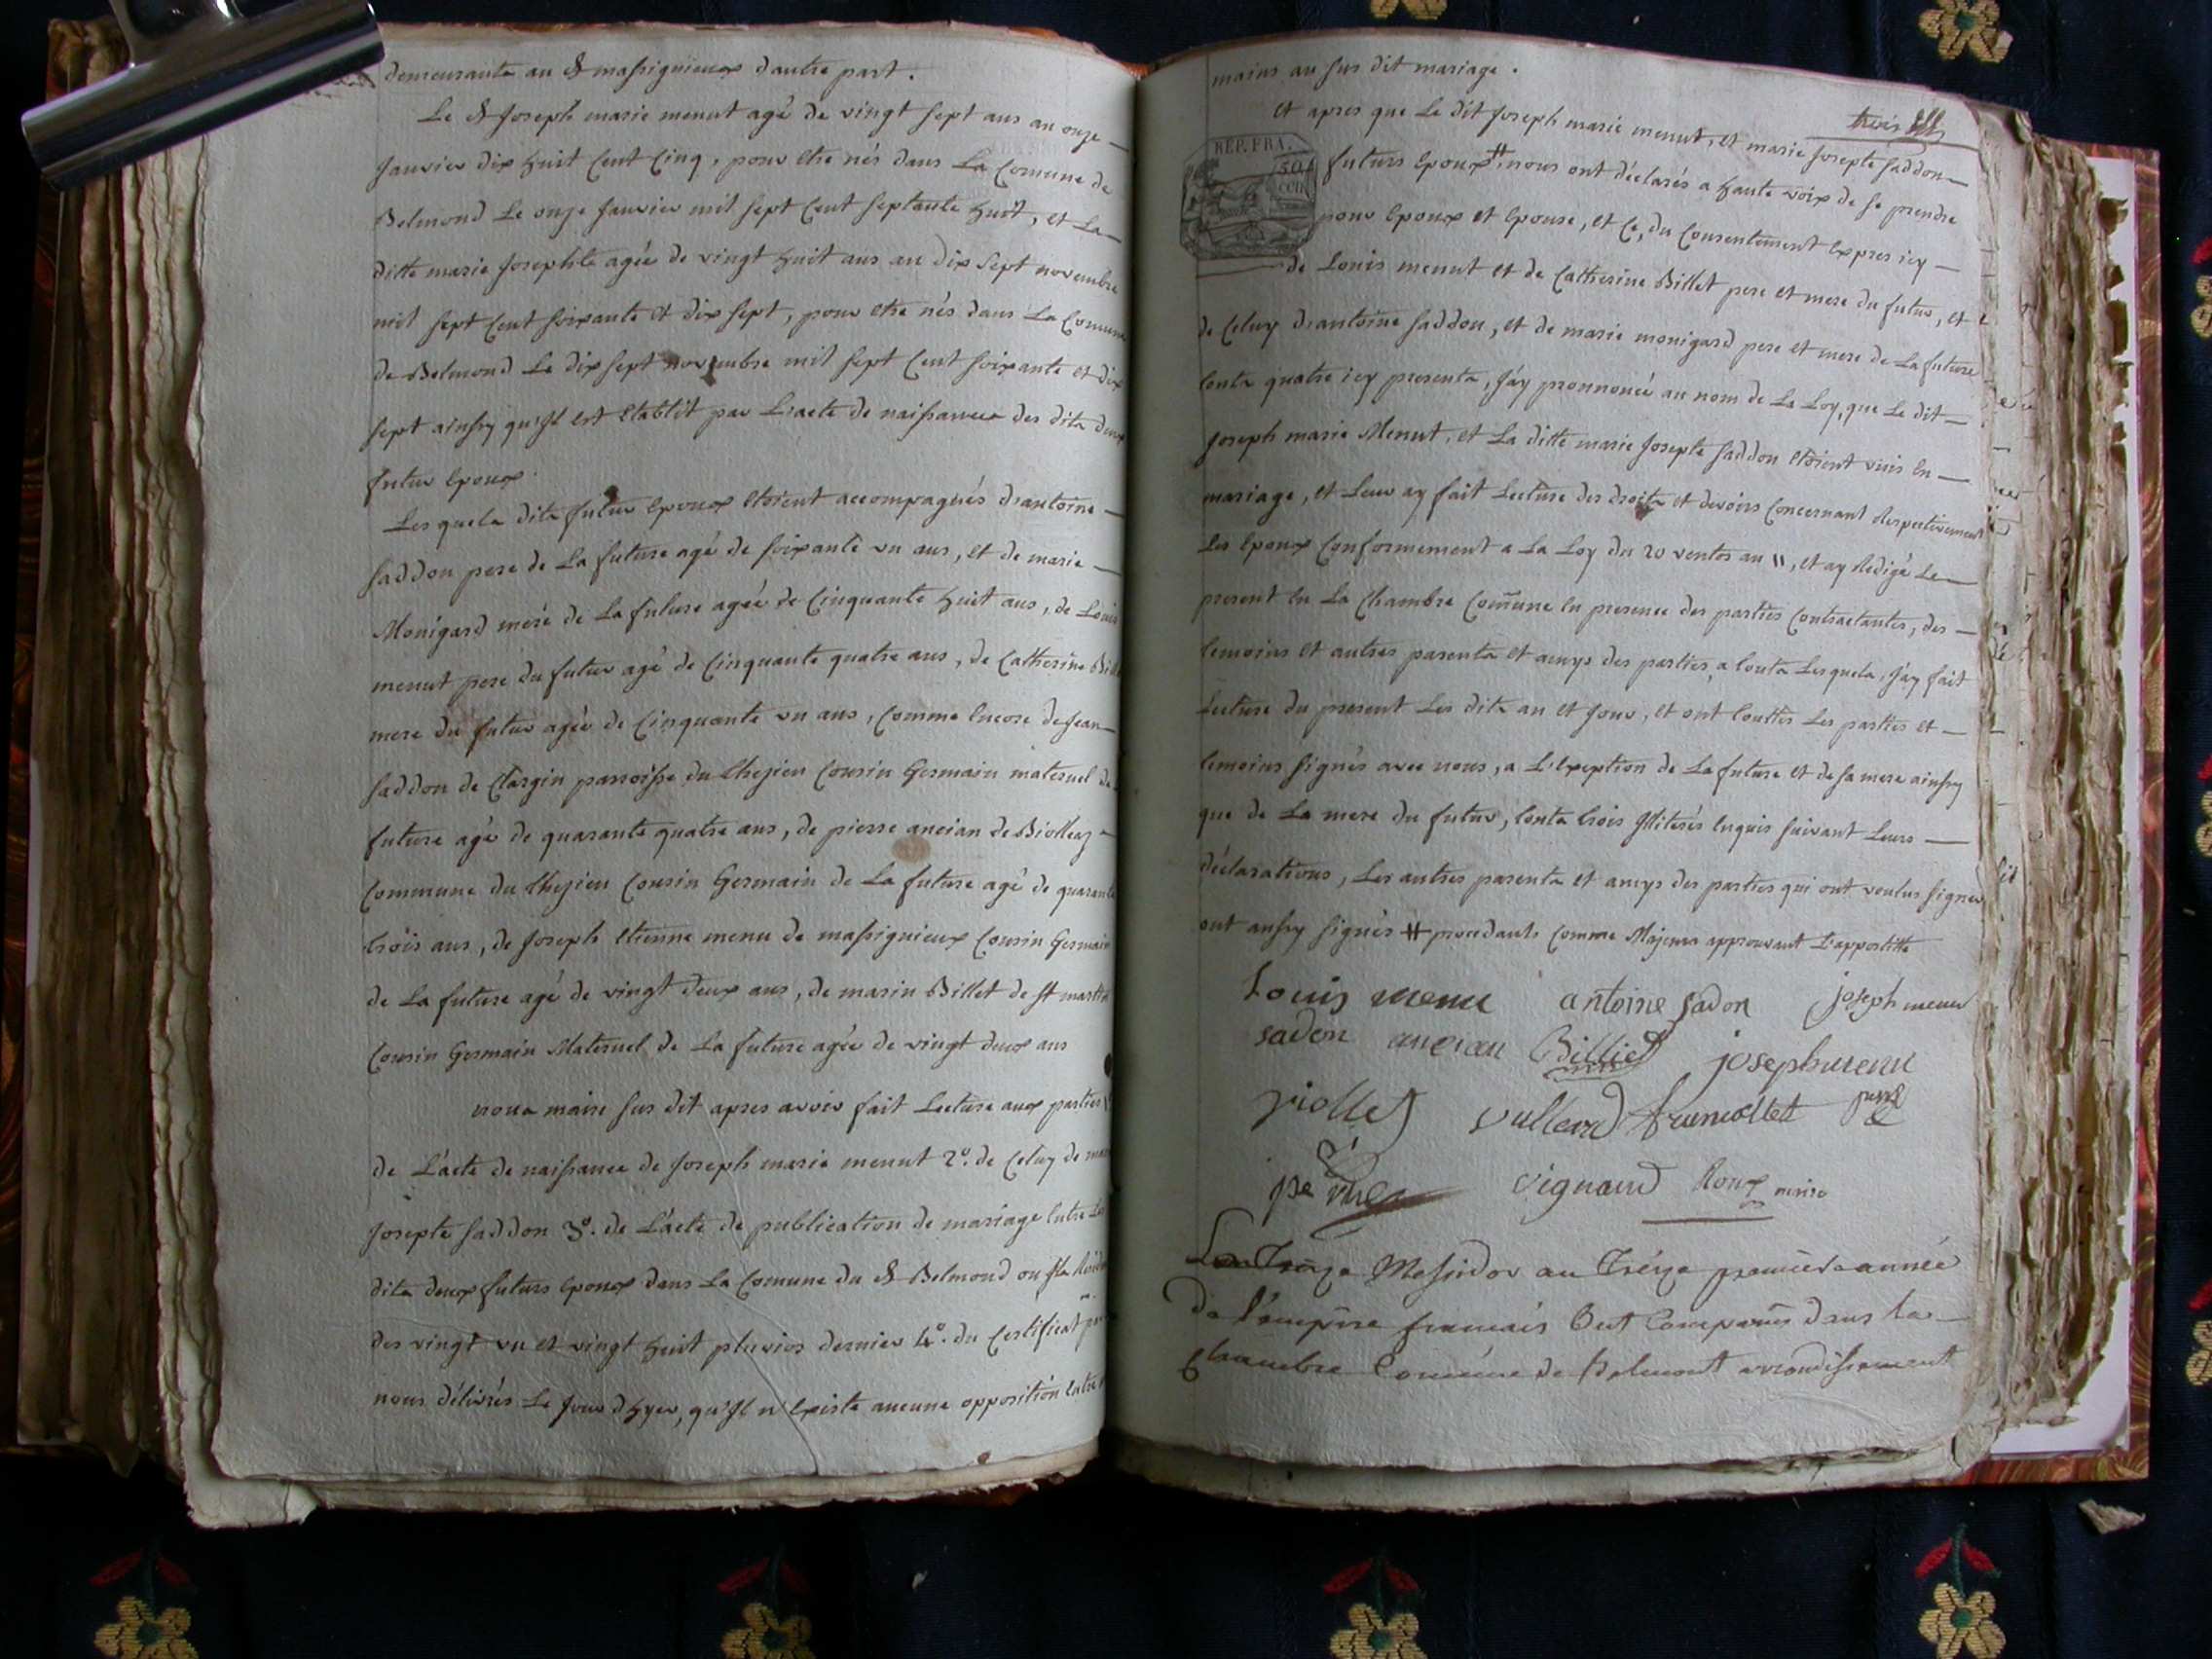 demeurante au dt massignieux dautre part.
Le dt Joseph marie menut agé de vingt sept ans au onze
Janvier dix huit Cent Cinq, pour etre nés dans La Comune de
Belmond Le onze Janvier mil sept Cent septante huit, et La
ditte marie Josephte agée de vingt huit ans au dix sept novembre
mil sept Cent soixante et dix sept, pour etre nés dans La Comune
de Belmond Le dix sept novembre mil sept Cent soixante et dix
sept ainssy qu'Il est Etablit par L'acte de naissance des dits deux
futur Epoux.
Les quels dits futur Epoux Etoient accompagnés d'antoine
saddon pere de La future agé de soixante un ans, et de marie
Monigard meré de La future agée de Cinquante huit ans, de Louis
menut pere du futur agé de Cinquante quatre ans, de Catherine Bill
mere du futur agée de Cinquante un ans, Comme Encore de Jean
saddon de Clargin parroisse du Chezieu Cousin Germain maternel de
future agé de quarante quatre ans, de pierre ancian de Biolleaz
Commune du Chezieu Cousin Germain de La future agé de quarante
trois ans, de Joseph Etienne menu de massignieux Cousin Germain
de La future agé de vingt deux ans, de marin Billet de st martin
Cousin Germain Maternel de La future agée de vingt deux ans
nous maire sus dit apres avoir fait Lecture aux parties
de L'acte de naissance de Joseph marie menut 2º. de Celuy de mar
Josepte saddon 3º. de L'acte de publication de mariage Entre Les
dits deux futurs Epoux dans La Comune du dt Belmond ou Ils
des vingt un et vingt huit pluvios dernier 4º. du Certificat par
nous délivrés Le Jour d'hyer, qu'Il n'Existe aucune opposition Entre
trois
mains au sus dit mariage.
Et apres que Le dit Joseph marie menut, et marie Josepte saddon
REP. FRA.
50
futurs Epoux # nous ont déclarés a haute voix de se prendre
pour Epoux et Epouse, et Ce, du Consentement Expres icy
de Louis menut et de Catherine Billet pere et mere du futur, et
de Celuy d'antoine saddon, et de marie monigard pere et mere de La future
touts quatre icy presents, J'ay pronnoncé au nom de La Loy, que Le dit
Joseph marie Menut, et La ditte marie Josepte saddon Etoient unis En
mariage, et Leur ay fait Lecture des droits et devoirs Concernant Respectivement
Les Epoux Conformement a La Loy du 20 ventos an 11, et ay Redigé Le
present En La Chambre Comune En presence des parties Contractantes, des
temoins et autres parents et amys des parties, a touts Lesquels, J'ay fait
Lecture du présent Les dits an et Jour, et ont touttes Les parties et
temoins signés avec nous, a L'Exeption de La future et de sa mere ainssy
que de La mere du futur, touts trois Illiterés Enquis suivant Leurs
déclarations, Les autres parents et amys des parties qui ont voulus signer
ont aussy signés # procedants Comme Majeurs approuvant L'appostitte
Louis menu antoine sadon joseph menu
sadon ancian Billiet joseph menu
violled vulliard
vignaud Roux maire
Le Treize Messidor an Treize premiere année
De l'empire francais Ont Comparus Dans La
Chambre Comune de Belmont arrondissement